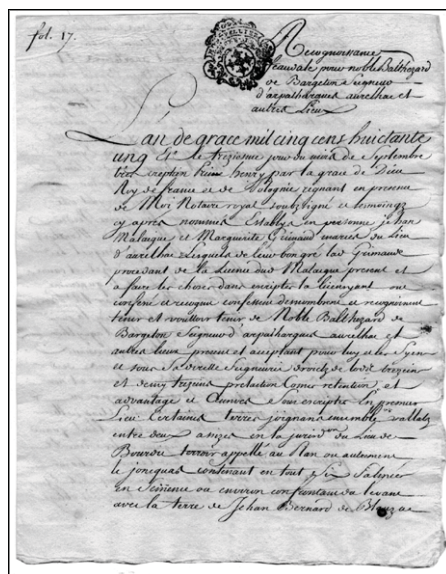 fol. 17.
Recognoissance
feaudale pour noble Balthezard
de Bargeton Seigneur
d'arpailhargues aurelhac et
autres Lieux
L'an de grace mil cinq cens huictante
ung et le treziesme jour du mois de Septembre
tres crestien prince henry par la grace de Dieu
Roy de france et de Pologne regnant en presence
de Moi Notaire royal soubzsigné et tesmoingz
cy apres nommés Establys en personne jehan
Malaigue et Marguerite Grimaud mariés du Lieu
d'aurelhac Lesquels de leur bon gré lad Grimaude
procedant de la Licence dud Malaigue present et
a faire les choses dans escriptes la licenciant ont
confessé et recogneu confessent denombrent et recognoissent
tenir et voulloir tenir de Noble Balthezard de
Bargeton Seigneur d'arpailhargues aurelhac et
autres lieux present et acceptant pour luy et les Syens
et sous sa directe Seigneurie droictz de lodz trezein
et demy trezeins prelation Comis retention et
advantage et Censives soubz escriptes En premier
Lieu Certaines terres joignans ensemble vallatz
entre deux assizes en la jurid.on du Lieu de
Bourdic terroir appellé au Plan ou autrement
le joncquas contenant en tout Six Salmées
en Semence ou environ confrontant du levant
avec la terre de Jehan Bernard de Blauzac